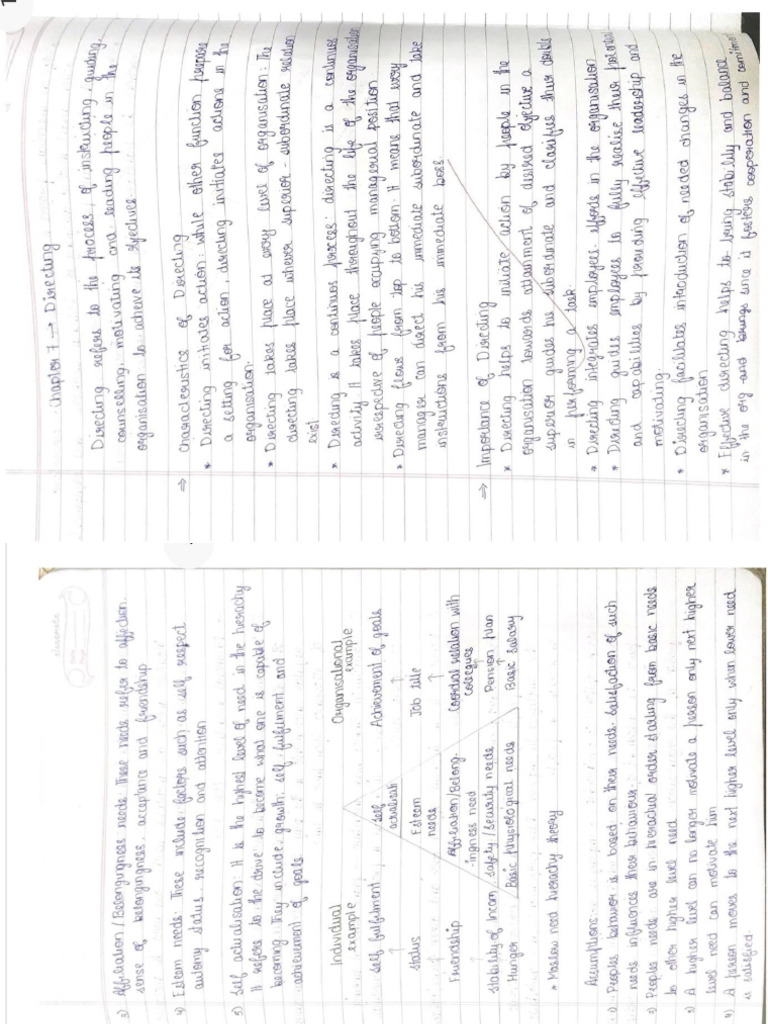 1
chapter 7 → Directing
Directing refers to the process of instructing, guiding,
counselling, motivating and leading people in the
organisation to achieve its objectives
⇒ characteristics of Directing
* Directing initiates action: while other function prepare
a setting for action, directing initiates actions in the
organisation.
* Directing takes place at every level of organisation: The
directing takes place wherever superior - subordinate relation
exist
* Directing is a continuos process: directing is a continuos
activity It takes place throughout the life of the organisation
irrespective of people occupying managerial position
* Directing flows from top to bottom: It means that every
manager can direct his immediate subordinate and take
instructions from his immediate boss.
⇒ Importance of Directing
* Directing helps to initiate action by people in the
organisation towards attainment of desired objective a
superior guides his subordinate and clarifies their doubts
in performing a task.
* Directing integrates employees efforts in the organisation
* Directing guides employees to fully realise their potential
and capabilities by providing effective leadership and
motivating
* Directing facilitates introduction of needed changes in the
organisation
* Effective directing helps to bring stability and balance
in the org and brings since it fosters cooperation and comitm
classmate
3) Affiliation / Belongingness needs: These needs refer to affection.
sense of belongingness, acceptance and friendship
4) Esteem needs: These include factors such as self respect
autonomy status, recognition and attention
5) Self actualisation: It is the highest level of need in the hierachy
It refers to the drive to become what one is capable of
becoming. They include, growth, self fulfilment and
achievement of goals
Individual example
Organisational example
Self fulfilment
self actualisati
Achievement of goals
status
Esteem needs
Job title
Friendship
Affiliation/Belong-ingness need
Coordial relation with colleques
Stability of Incom
safety/security needs
Pension plan
Hunger
Basic physiological needs
Basic Salary
* Maslow need hierachy theory
Assumptions:
1) Peoples behavior is based on their needs. Satisfaction of such
needs influences their behaviour.
2) Peoples needs are in hierachical order starting from basic needs
to other higher level need
3) A higher level can no longer motivate a person only next higher
level need can motivate him
4) A person moves to the next higher level only when lower need
is satisfied.